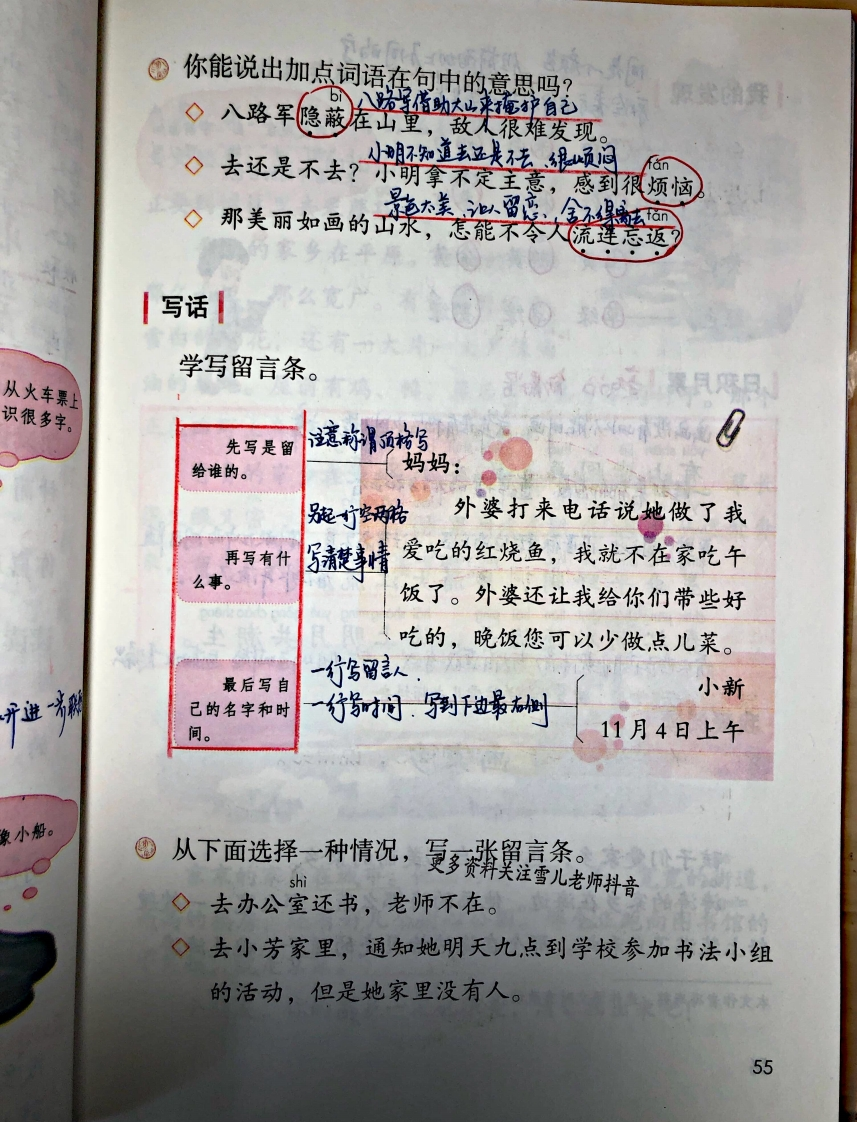 你能说出加点词语在句中的意思吗?
bì
八路军借助大山来掩护自己
八路军隐蔽在山里,敌人很难发现。
小明不知道去还是不去、很烦闷
fán
去还是不去?小明拿不定主意,感到很烦恼。
景色太美、让人留恋、舍不得离去
fǎn
那美丽如画的山水,怎能不令人流连忘返?
写话
学写留言条。
从火车票上
识很多字。
先写是留
给谁的。
注意称谓顶格写
妈妈:
另起一行空两格
写清楚事情
再写有什
么事。
外婆打来电话说她做了我
爱吃的红烧鱼,我就不在家吃午
饭了。外婆还让我给你们带些好
吃的,晚饭您可以少做点儿菜。
最后写自
己的名字和时
间。
一行写留言人.
一行写时间.写到下边最右侧
小新
11月4日上午
开进一步
象小船。
从下面选择一种情况,写一张留言条。
更多资料关注雪儿老师抖音
shì
去办公室还书,老师不在。
去小芳家里,通知她明天九点到学校参加书法小组
的活动,但是她家里没有人。
55